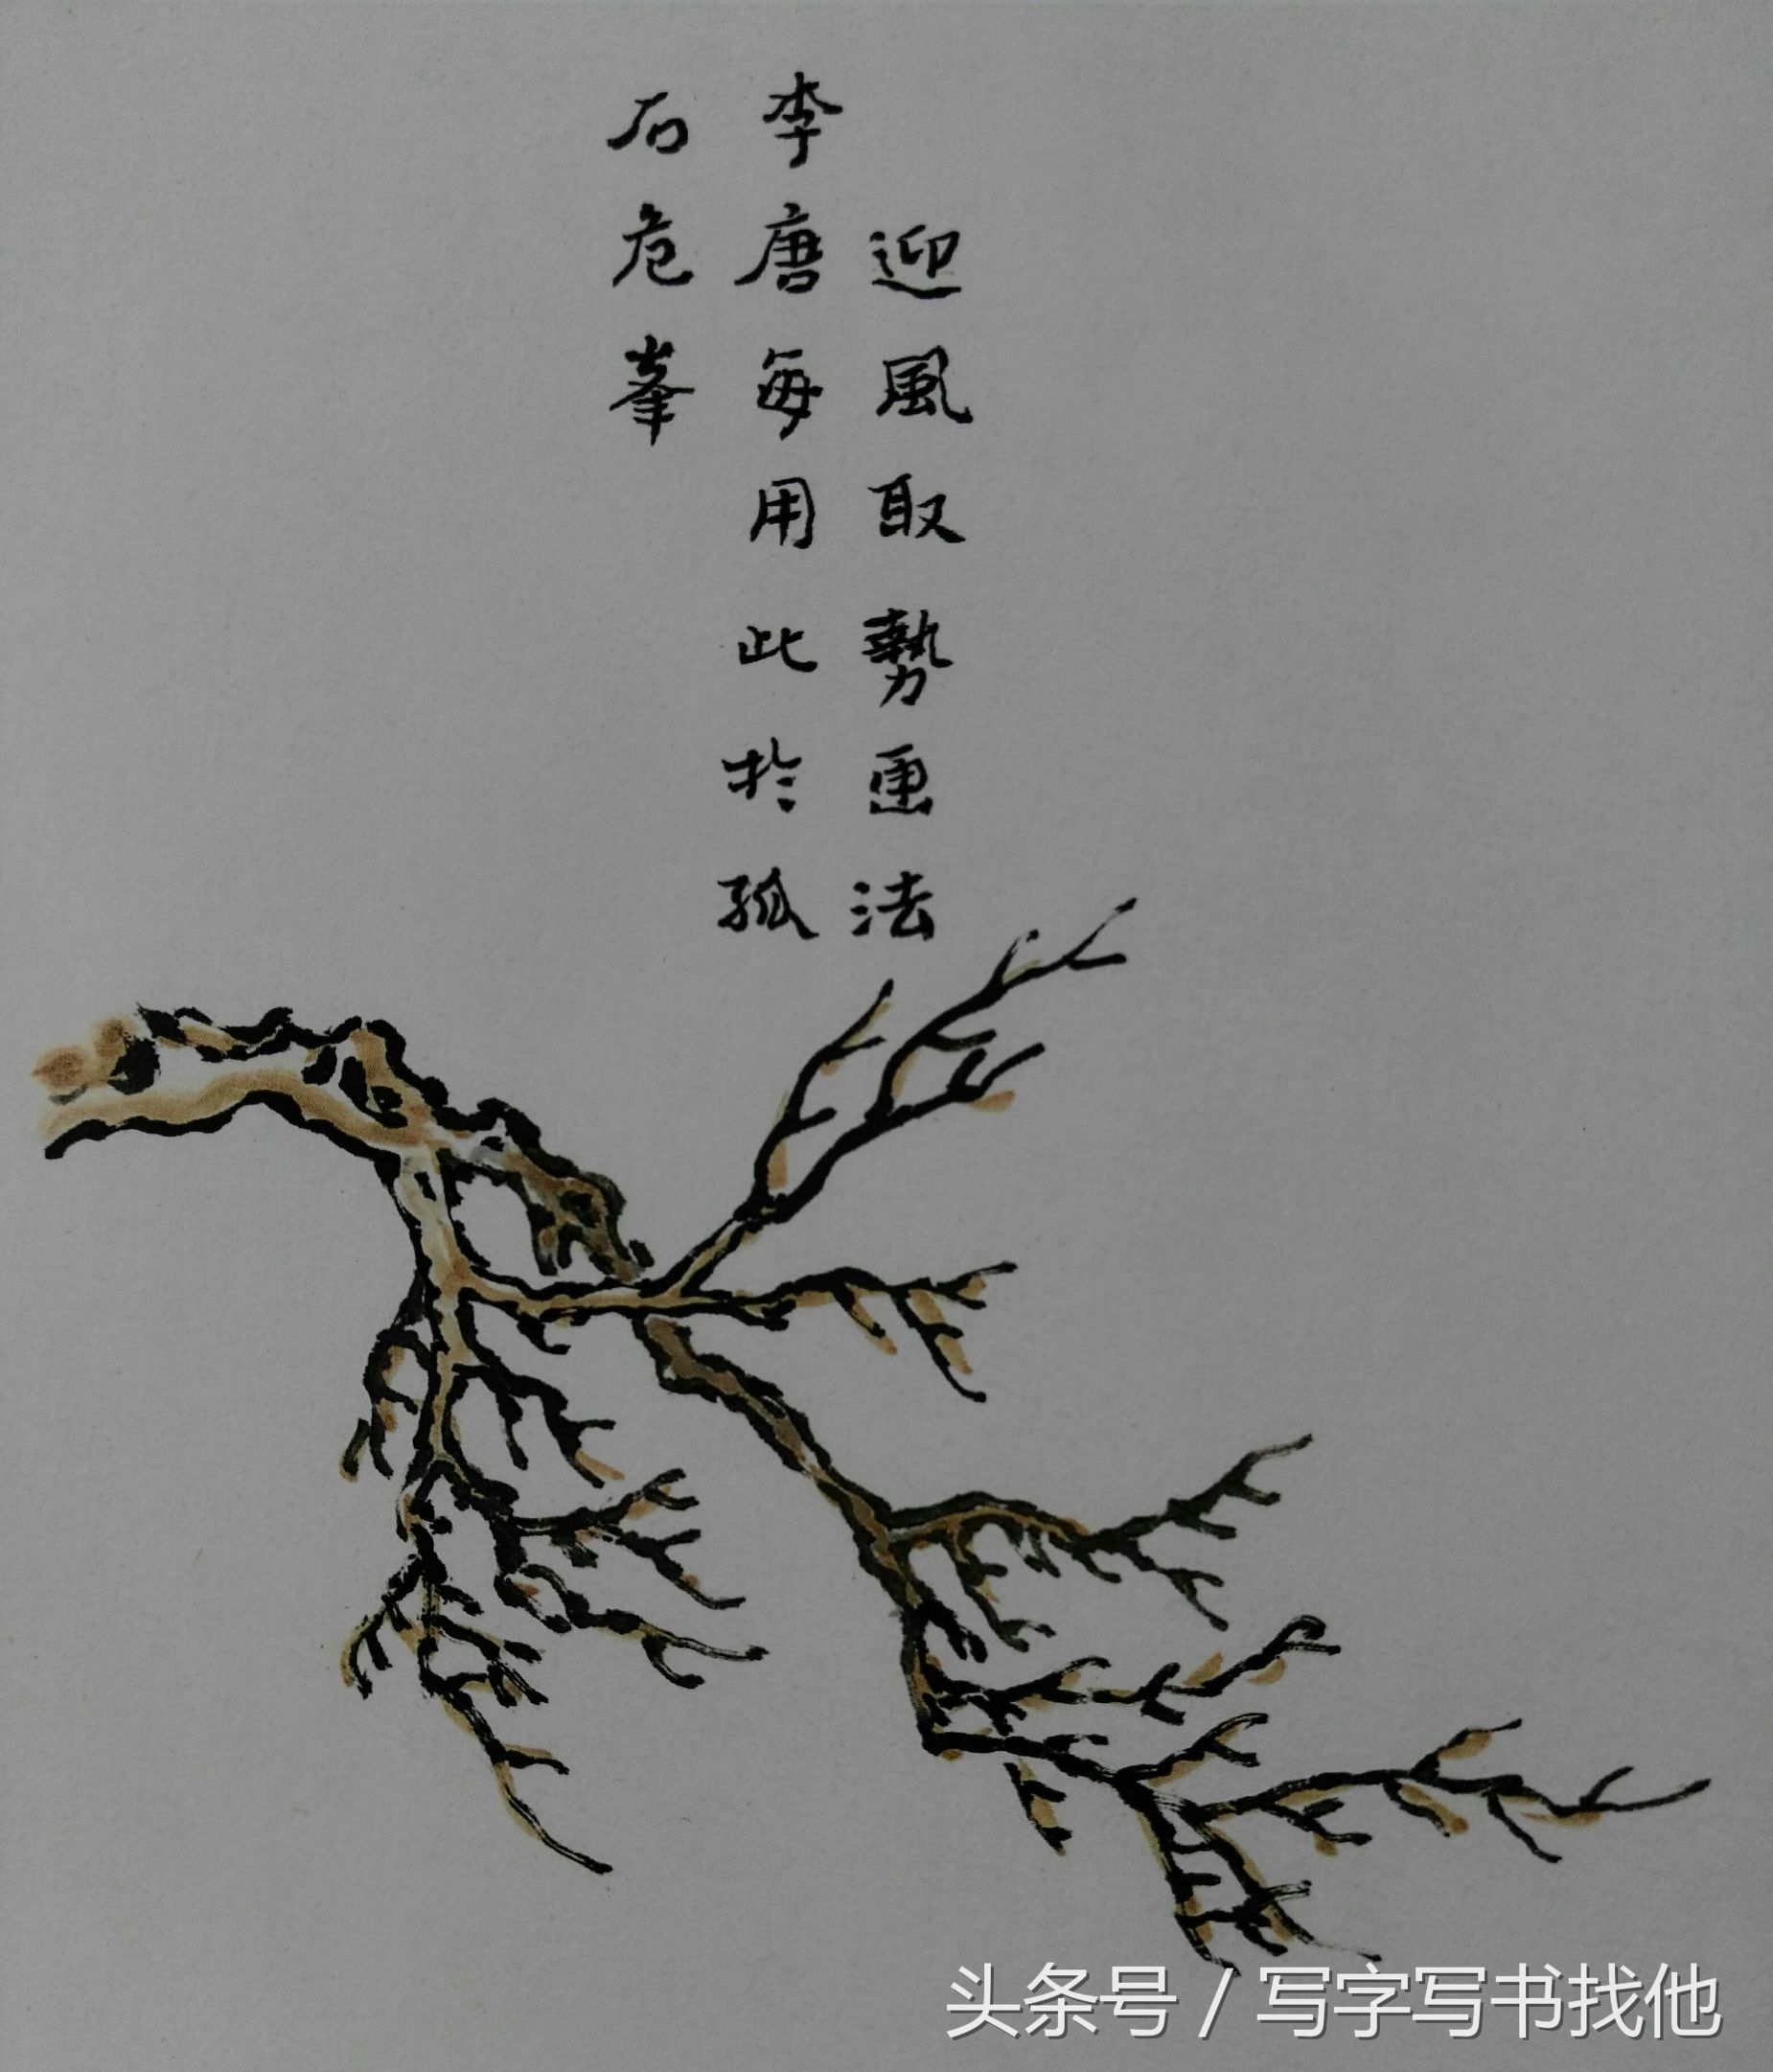 迎風取勢畫法
李唐每用此於孤
石危峯
头条号 / 写字写书找他